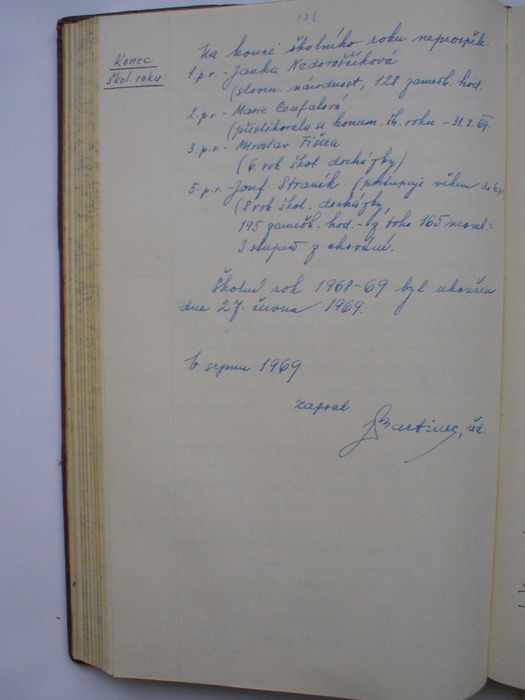 178
Konec
škol. roku:
Na konci školního roku neprospěli:
1. p. r. - Janka Nedorosčíková
(sloven. národnost, 128 zamešk. hod.
2. p. r. - Marie Coufalová
(přistěhovala u konce šk. roku - 31.3.69.
3 p. r. - Miroslav Fišera
(6. rok škol. docházky)
5. p. r. - Josef Straněk (postupuje věkem do 6. p.
(8 rok škol. docházky,
195 zamešk. hod. - z toho 165 neoml.:
3 stupeň z chování.
Školní rok 1968-69 byl ukončen
dne 27. června 1969.
V srpnu 1969
zapsal
Bartinec, řed.